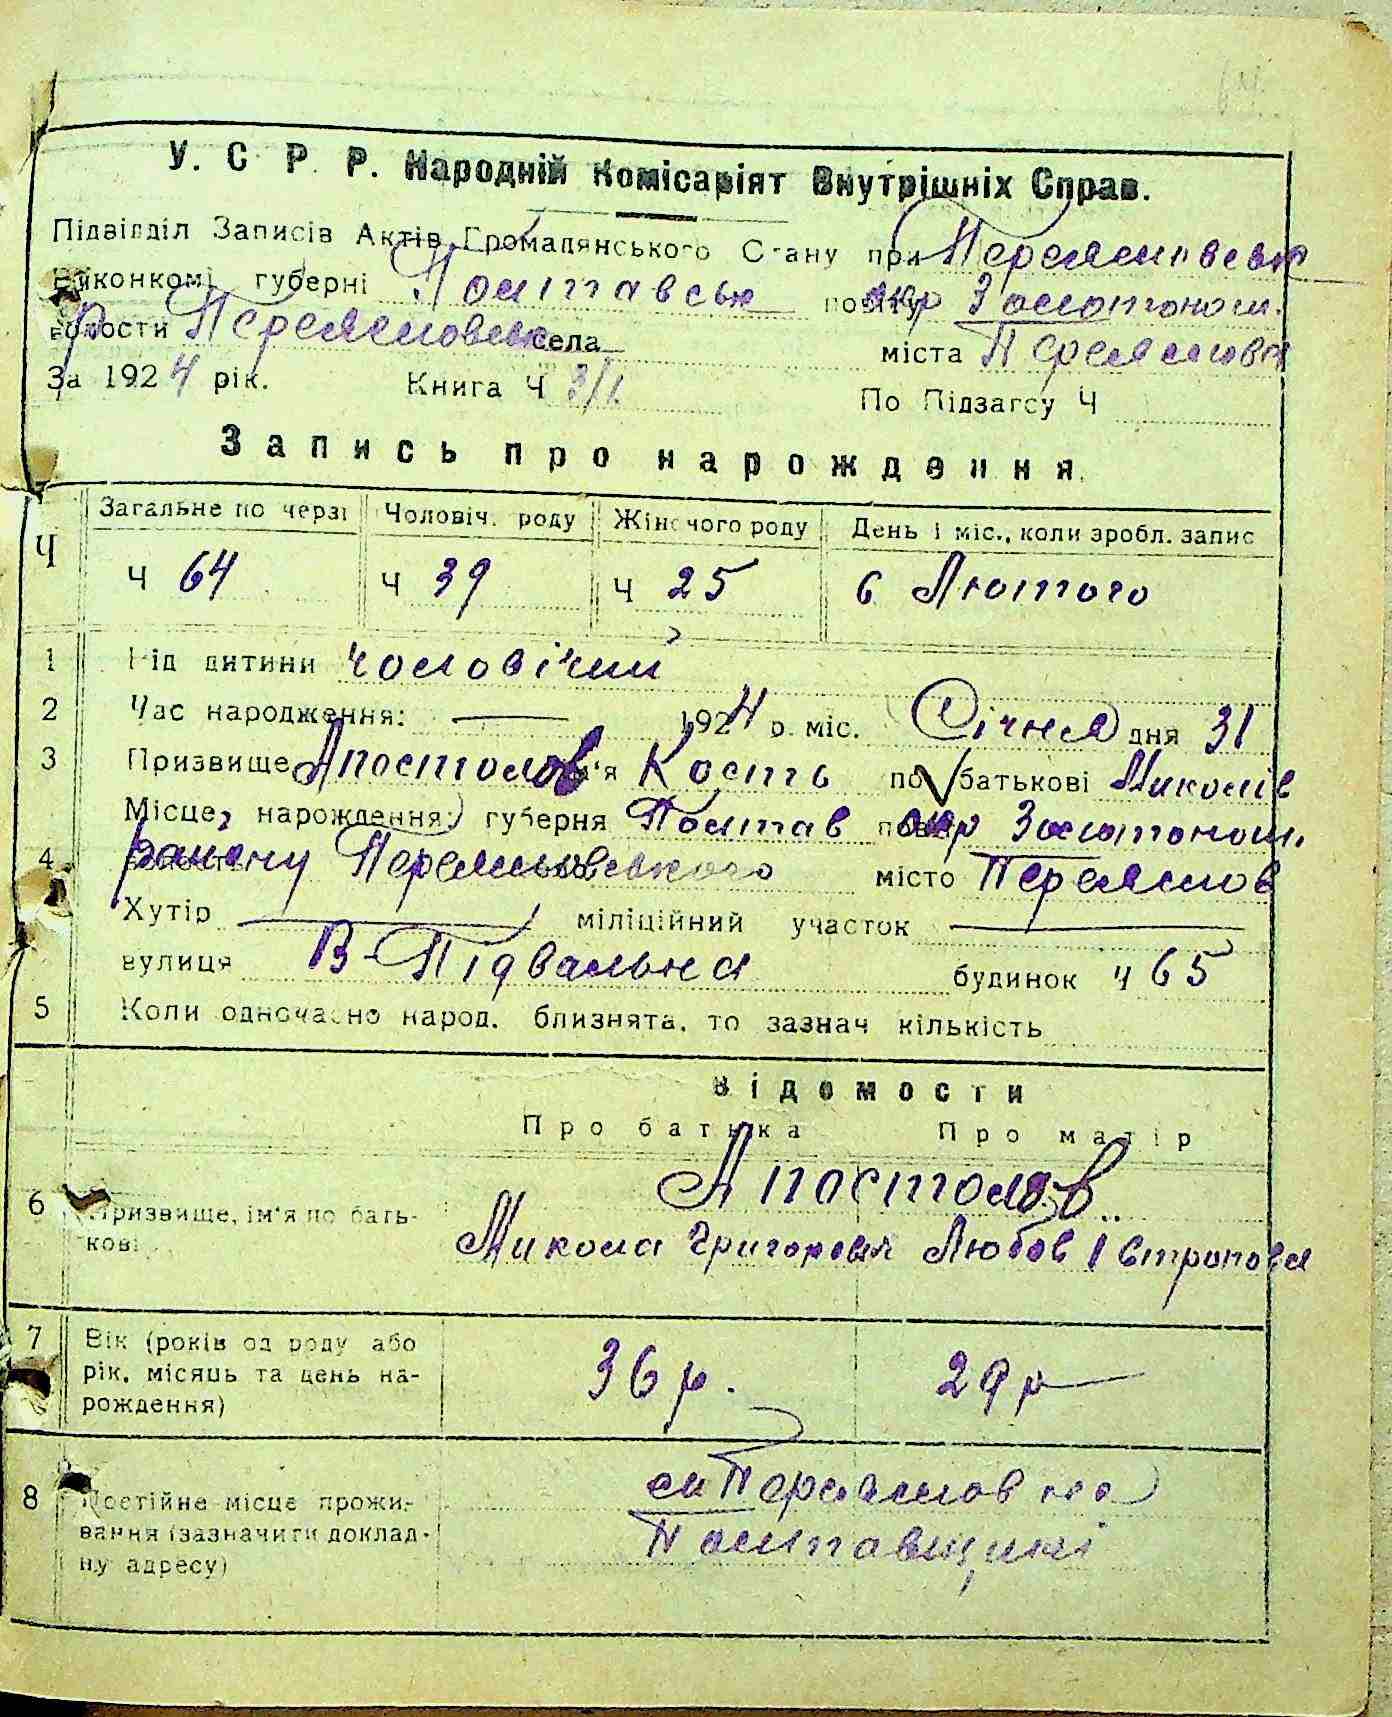 64
У. С. Р. Р. Народній Комісаріят Внутрішніх Справ.
Підвідділ Записів Актів Громадянського Стану при Переяславськ
Виконкомі губерні Полтавськ повіту окр Золотонош.
волости р Переяславськ села міста Переяслова
За 1924 рік. Книга Ч 3/1 По Підзагсу Ч
Запись про народження.
Ч Загальне по черзі Чоловіч. роду Жіночого роду День і міс., коли зробл. запис
Ч 64 Ч 39 Ч 25 6 Лютого
1 Рід дитини чоловічий
2 Час народження: — 1924 р. міс. Січня дня 31
3 Призвище Апостолов ім'я Кость по батькові Миколів
Місце нарождення: губерня Полтав повіт окр Золотонош.
4 волость району Переясловського місто Переяслов
Хутір — міліційний участок —
вулиця В-Підвальна будинок ч 65
5 Коли одночасно народ. близнята, то зазнач кількість
Відомости
Про батька Про матір
Апостолов
6 Призвище, ім'я по бать-
кові
Микола Григоров Любов Євтропова
7 Вік (років од роду або
рік, місяць та день на-
рождення)
36 р. 29 р
8 Постійне місце прожи-
вання (зазначити доклад-
ну адресу)
м Переяслов на
Полтавщині